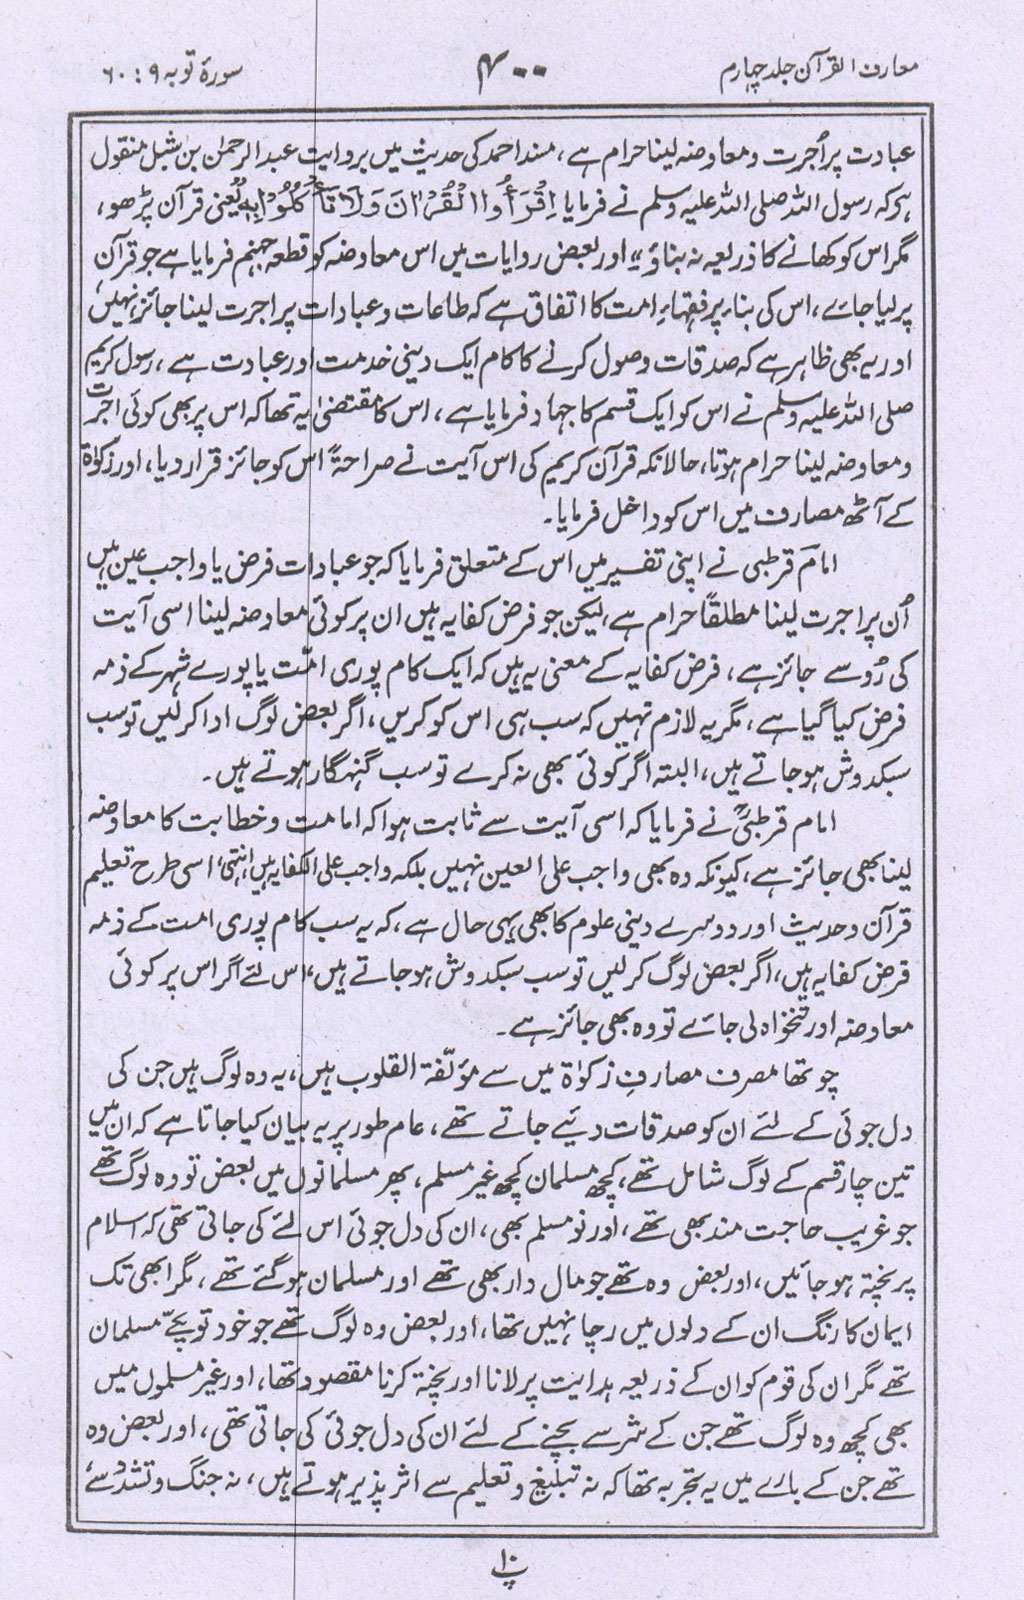 معارف القرآن جلد چہارم
۴۰۰
سورۂ توبہ ۹ : ۶۰
عبادت پر اُجرت و معاوضہ لینا حرام ہے، مسند احمد کی حدیث میں بروایت عبد الرحمٰن بن شبل منقول
ہے کہ رسول اللہ صلی اللہ علیہ وسلم نے فرمایا اِقْرَأُوا الْقُرْاٰنَ وَلَا تَأْكُلُوْا بِهٖ یعنی قرآن پڑھو،
مگر اس کو کھانے کا ذریعہ نہ بناؤ، اور بعض روایات میں اس معاوضہ کو قطعہ جہنم فرمایا ہے جو قرآن
پر لیا جائے، اس کی بناء پر فقہاءِ امت کا اتفاق ہے کہ طاعات و عبادات پر اجرت لینا جائز نہیں،
اور یہ بھی ظاہر ہے کہ صدقات وصول کرنے کا کام ایک دینی خدمت اور عبادت ہے، رسول کریم
صلی اللہ علیہ وسلم نے اس کو ایک قسم کا جہاد فرمایا ہے، اس کا مقتضیٰ یہ تھا کہ اس پر بھی کوئی اجرت
و معاوضہ لینا حرام ہوتا، حالانکہ قرآن کریم کی اس آیت نے صراحۃً اس کو جائز قرار دیا، اور زکوٰۃ
کے آٹھ مصارف میں اس کو داخل فرمایا۔
امام قرطبی نے اپنی تفسیر میں اس کے متعلق فرمایا کہ جو عبادات فرض یا واجب عین ہیں
اُن پر اجرت لینا مطلقاً حرام ہے، لیکن جو فرض کفایہ ہیں ان پر کوئی معاوضہ لینا اسی آیت
کی رُو سے جائز ہے، فرض کفایہ کے معنی یہ ہیں کہ ایک کام پوری امّت یا پورے شہر کے ذمہ
فرض کیا گیا ہے، مگر یہ لازم نہیں کہ سب ہی اس کو کریں، اگر بعض لوگ ادا کرلیں تو سب
سبکدوش ہو جاتے ہیں، البتہ اگر کوئی بھی نہ کرے تو سب گنہگار ہوتے ہیں۔
امام قرطبیؒ نے فرمایا کہ اسی آیت سے ثابت ہوا کہ امامت و خطابت کا معاوضہ
لینا بھی جائز ہے، کیونکہ وہ بھی واجب علی العین نہیں بلکہ واجب علی الکفایہ ہیں انتہیٰ، اسی طرح تعلیم
قرآن و حدیث اور دوسرے دینی علوم کا بھی یہی حال ہے، کہ یہ سب کام پوری امت کے ذمہ
فرض کفایہ ہیں، اگر بعض لوگ کرلیں تو سب سبکدوش ہو جاتے ہیں، اس لئے اگر اس پر کوئی
معاوضہ اور تنخواہ لی جائے تو وہ بھی جائز ہے۔
چوتھا مصرف مصارفِ زکوٰۃ میں سے مؤلّفۃ القلوب ہیں، یہ وہ لوگ ہیں جن کی
دل جوئی کے لئے ان کو صدقات دئیے جاتے تھے، عام طور پر یہ بیان کیا جاتا ہے کہ ان میں
تین چار قسم کے لوگ شامل تھے، کچھ مسلمان کچھ غیر مسلم، پھر مسلمانوں میں بعض تو وہ لوگ تھے
جو غریب حاجت مند بھی تھے، اور نو مسلم بھی، ان کی دل جوئی اس لئے کی جاتی تھی کہ اسلام
پر پختہ ہو جائیں، اور بعض وہ تھے جو مال دار بھی تھے اور مسلمان ہو گئے تھے، مگر ابھی تک
ایمان کا رنگ ان کے دلوں میں رچا نہیں تھا، اور بعض وہ لوگ تھے جو خود تو پکّے مسلمان
تھے مگر ان کی قوم کو ان کے ذریعہ ہدایت پر لانا اور پختہ کرنا مقصود تھا، اور غیر مسلموں میں
بھی کچھ وہ لوگ تھے جن کے شر سے بچنے کے لئے ان کی دل جوئی کی جاتی تھی، اور بعض وہ
تھے جن کے بارے میں یہ تجربہ تھا کہ نہ تبلیغ و تعلیم سے اثر پذیر ہوتے ہیں، نہ جنگ و تشدد سے
پ۱۰